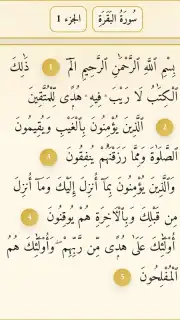 سُورَةُ البَقَرَةِ
الجزء 1
بِسْمِ اللَّهِ الرَّحْمَٰنِ الرَّحِيمِ الٓمٓ ١ ذَٰلِكَ
الْكِتَابُ لَا رَيْبَ ۛ فِيهِ ۛ هُدًى لِّلْمُتَّقِينَ
٢ الَّذِينَ يُؤْمِنُونَ بِالْغَيْبِ وَيُقِيمُونَ
الصَّلَاةَ وَمِمَّا رَزَقْنَاهُمْ يُنفِقُونَ ٣
وَالَّذِينَ يُؤْمِنُونَ بِمَا أُنزِلَ إِلَيْكَ وَمَا أُنزِلَ
مِن قَبْلِكَ وَبِالْآخِرَةِ هُمْ يُوقِنُونَ ٤
أُولَٰئِكَ عَلَىٰ هُدًى مِّن رَّبِّهِمْ ۖ وَأُولَٰئِكَ هُمُ
الْمُفْلِحُونَ ٥